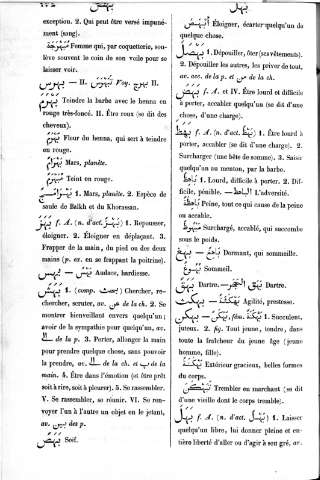 بهل
exception. 2. Qui peut être versé impuné-
ment (sang).
Femme qui, par coquetterie, sou-
lève souvent le coin de son voile pour se
laisser voir.
بهوس — II. Voy. بهرج II.
بهرم Teindre la barbe avec le henna en
rouge très-foncé. II. Être roux (se dit des
cheveux).
بهرم Fleur du henna, qui sert à teindre
en rouge.
بهرام Mars, planète.
مبهرم Teint en rouge.
بهرامج 1. Mars, planète. 2. Espèce de
saule de Balkh et du Khorassan.
بهز f. A. (n. d'act. بهز) 1. Repousser,
éloigner. 2. Éloigner en déplaçant. 3.
Frapper de la main, du pied ou des deux
mains (p. ex. en se frappant la poitrine).
بهس — بهيس Audace, hardiesse.
بهش 1. (comp. بهش) Chercher, re-
chercher, scruter, av. عن de la ch. 2. Se
montrer bienveillant envers quelqu'un;
avoir de la sympathie pour quelqu'un, av.
الى de la p. 3. Porter, allonger la main
pour prendre quelque chose, sans pouvoir
la prendre, av. الى de la ch. et ب de la
main. 4. Être dans l'émotion (et être prêt
soit à rire, soit à pleurer). 5. Se rassembler.
V. Se rassembler, se réunir. VI. Se ren-
voyer l'un à l'autre un objet en le jetant,
av. بين des p.
بهص Soif.
أبهص Éloigner, écarter quelqu'un de
quelque chose.
بهصل 1. Dépouiller, ôter (ses vêtements).
2. Dépouiller les autres, les priver de tout,
av. acc. de la p. et من de la ch.
بهض f. A. et IV. Être lourd et difficile
à porter, accabler quelqu'un (se dit d'une
chose, d'une charge).
بهظ f. A. (n. d'act. بهظ) 1. Être lourd à
porter, accabler (se dit d'une charge). 2.
Surcharger (une bête de somme). 3. Saisir
quelqu'un au menton, par la barbe.
باهظ 1. Lourd, difficile à porter. 2. Dif-
ficile, pénible. — الباهظ L'adversité.
باهظة Peine, tout ce qui cause de la peine
ou accable.
مبهوظ Surchargé, accablé, qui succombe
sous le poids.
بهغ — باهغ Dormant, qui sommeille.
بهوغ Sommeil.
بهق — بهق Dartre. بهق الحجر
بهكث — بهكثة Agilité, prestesse.
بهكن — بهكن, fém. بهكنة 1. Succulent,
juteux. 2. fig. Tout jeune, tendre, dans
toute la fraîcheur du jeune âge (jeune
homme, fille).
بهكنة Extérieur gracieux, belles formes
du corps.
تبهكن Trembler en marchant (se dit
d'une vieille dont le corps tremble).
بهل f. A. (n. d'act. بهل) 1. Laisser
quelqu'un libre, lui donner pleine et en-
tière liberté d'aller ou d'agir à son gré, av.